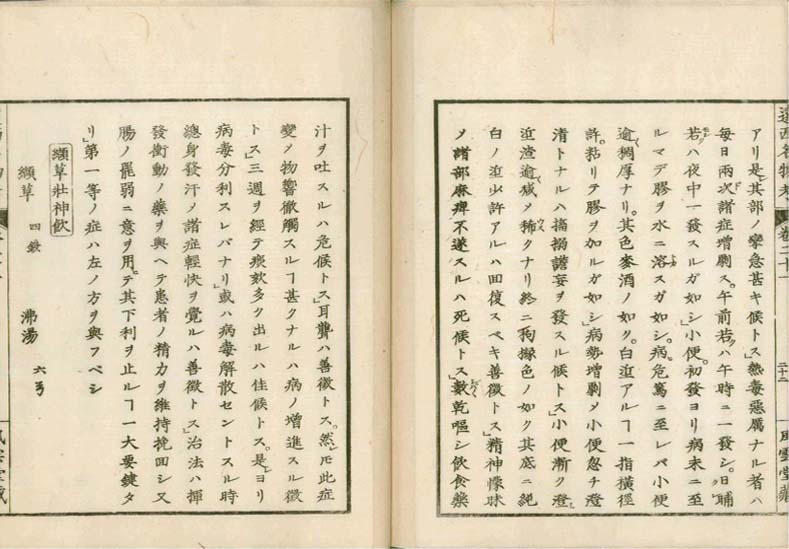 遠西名物考 卷二十一 二十二 風雲堂藏
アリ是其部ノ攣急甚キ候トス」熱毒惡厲ナル者ハ
毎日兩次諸症増劇ス午前若クハ午時ニ一發シ日晡
若クハ夜中一發スルガ如シ」小便初發ヨリ病末ニ至
ルマデ膠ヲ水ニ溶スガ如シ病危篤ニ至レバ小便
逾稠厚ナリ其色麥酒ノ如ク白滓アルヿ一指横徑
許粘リテ膠ヲ加ルガ如シ」病勢増劇メ小便忽チ澄
清トナルハ搐搦譫妄ヲ發スル候トス」小便漸ク澄
滓渣逾減メ稀クナリ終ニ枸櫞色ノ如ク其底ニ純
白ノ滓少許アルハ回復スベキ善徴トス」精神懞昧
メ諸部麻痺不遂スルハ死候トス」數乾嘔シ飲食藥
汁ヲ吐スルハ危候トス」耳聾ハ善徴トス然𪜈此症
變メ物響徹觸スルヿ甚クナルハ病ノ増進スル徴
トス」三週ヲ經テ痰欬多ク出ルハ佳候トス是ヨリ
病毒分利スレバナリ」或ハ病毒解散セントスル時
總身發汗メ諸症輕快ヲ覺ルハ善徴トス」治法ハ揮
發衝動ノ藥ヲ與ヘテ患者ノ精力ヲ維持挽回シ又
腸ノ罷弱ニ意ヲ用テ其下利ヲ止ルヿ一大要鍵タ
リ」第一等ノ症ハ左ノ方ヲ與フベシ
纈草壯神飲
纈草 四錢 沸湯 六弓